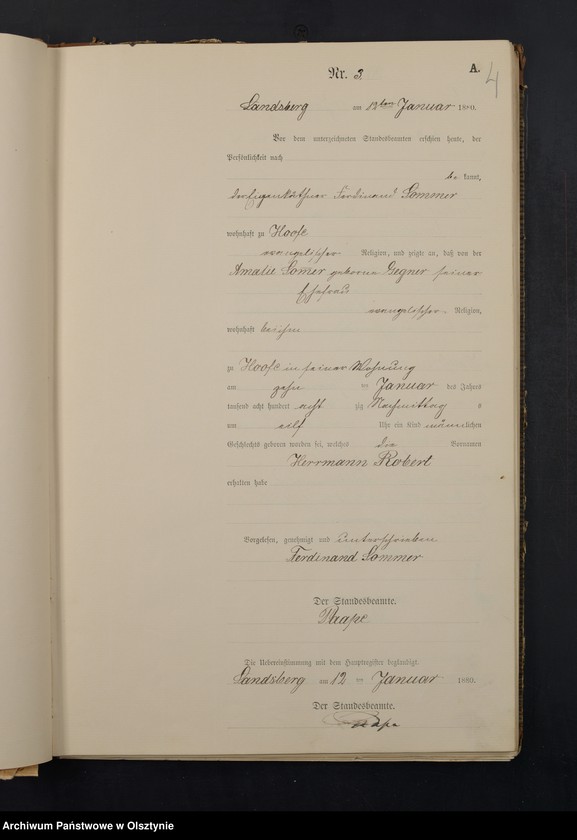 Nr. 3.
A.
4
Landsberg am 12ten Januar 1880.
Vor dem unterzeichneten Standesbeamten erschien heute, der
Persönlichkeit nach
be kannt,
der Eigenkäthner Ferdinand Sommer
wohnhaft zu Hoofe
evangelischer Religion, und zeigte an, daß von der
Amalie Somer geborene Gegner seiner
Ehefrau
evangelischer Religion,
wohnhaft bei ihm
zu Hoofe in seiner Wohnung
am zehn ten Januar des Jahres
tausend acht hundert acht zig Nachmittag s
um eilf Uhr ein Kind männlichen
Geschlechts geboren worden sei, welches die Vornamen
Herrmann Robert
erhalten habe
Vorgelesen, genehmigt und unterschrieben
Ferdinand Sommer
Der Standesbeamte.
Die Uebereinstimmung mit dem Hauptregister beglaubigt.
Landsberg am 12 ten Januar 1880.
Der Standesbeamte.
Archiwum Państwowe w Olsztynie